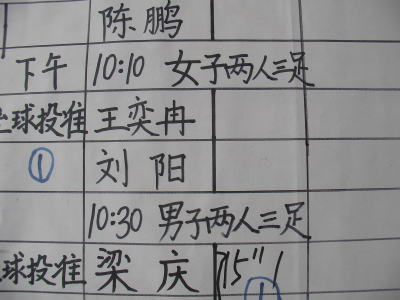 陈鹏
下午 10:10 女子两人三足
垒球投准 王奕冉
① 刘阳
10:30 男子两人三足
球投准 梁庆 15"
①